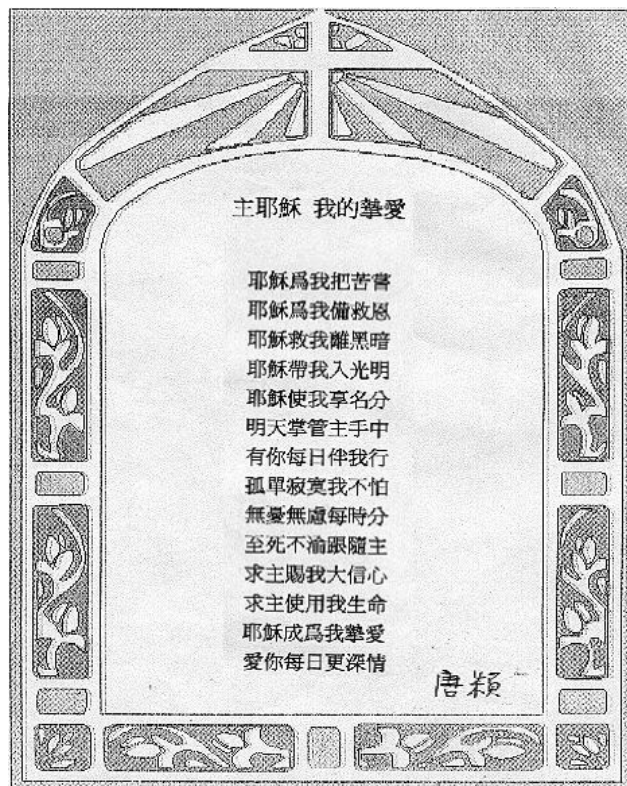 主耶穌 我的摯愛
耶穌爲我把苦嘗
耶穌爲我備救恩
耶穌救我離黑暗
耶穌帶我入光明
耶穌使我享名分
明天掌管主手中
有你每日伴我行
孤單寂寞我不怕
無憂無慮每時分
至死不渝跟隨主
求主賜我大信心
求主使用我生命
耶穌成爲我摯愛
愛你每日更深情
唐穎